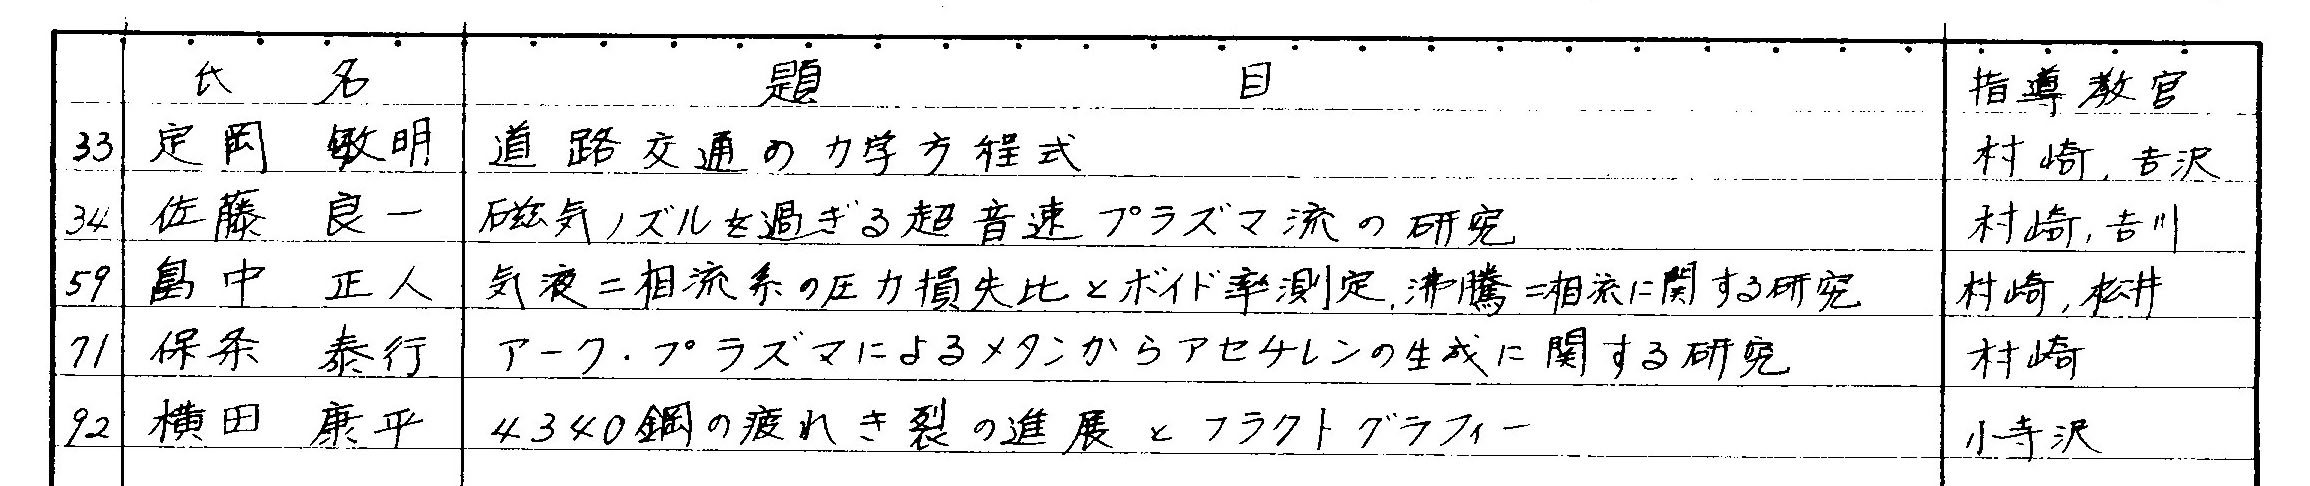 氏 名 題 目 指導教官
33 定岡 敏明 道路交通の力学方程式 村崎, 吉沢
34 佐藤 良一 磁気ノズルを過ぎる超音速プラズマ流の研究 村崎, 吉川
59 畠中 正人 気液二相流系の圧力損失比とボイド率測定, 沸騰二相流に関する研究 村崎, 松井
71 保条 泰行 アーク・プラズマによるメタンからアセチレンの生成に関する研究 村崎
92 横田 康平 4340鋼の疲れき裂の進展とフラクトグラフィー 小寺沢